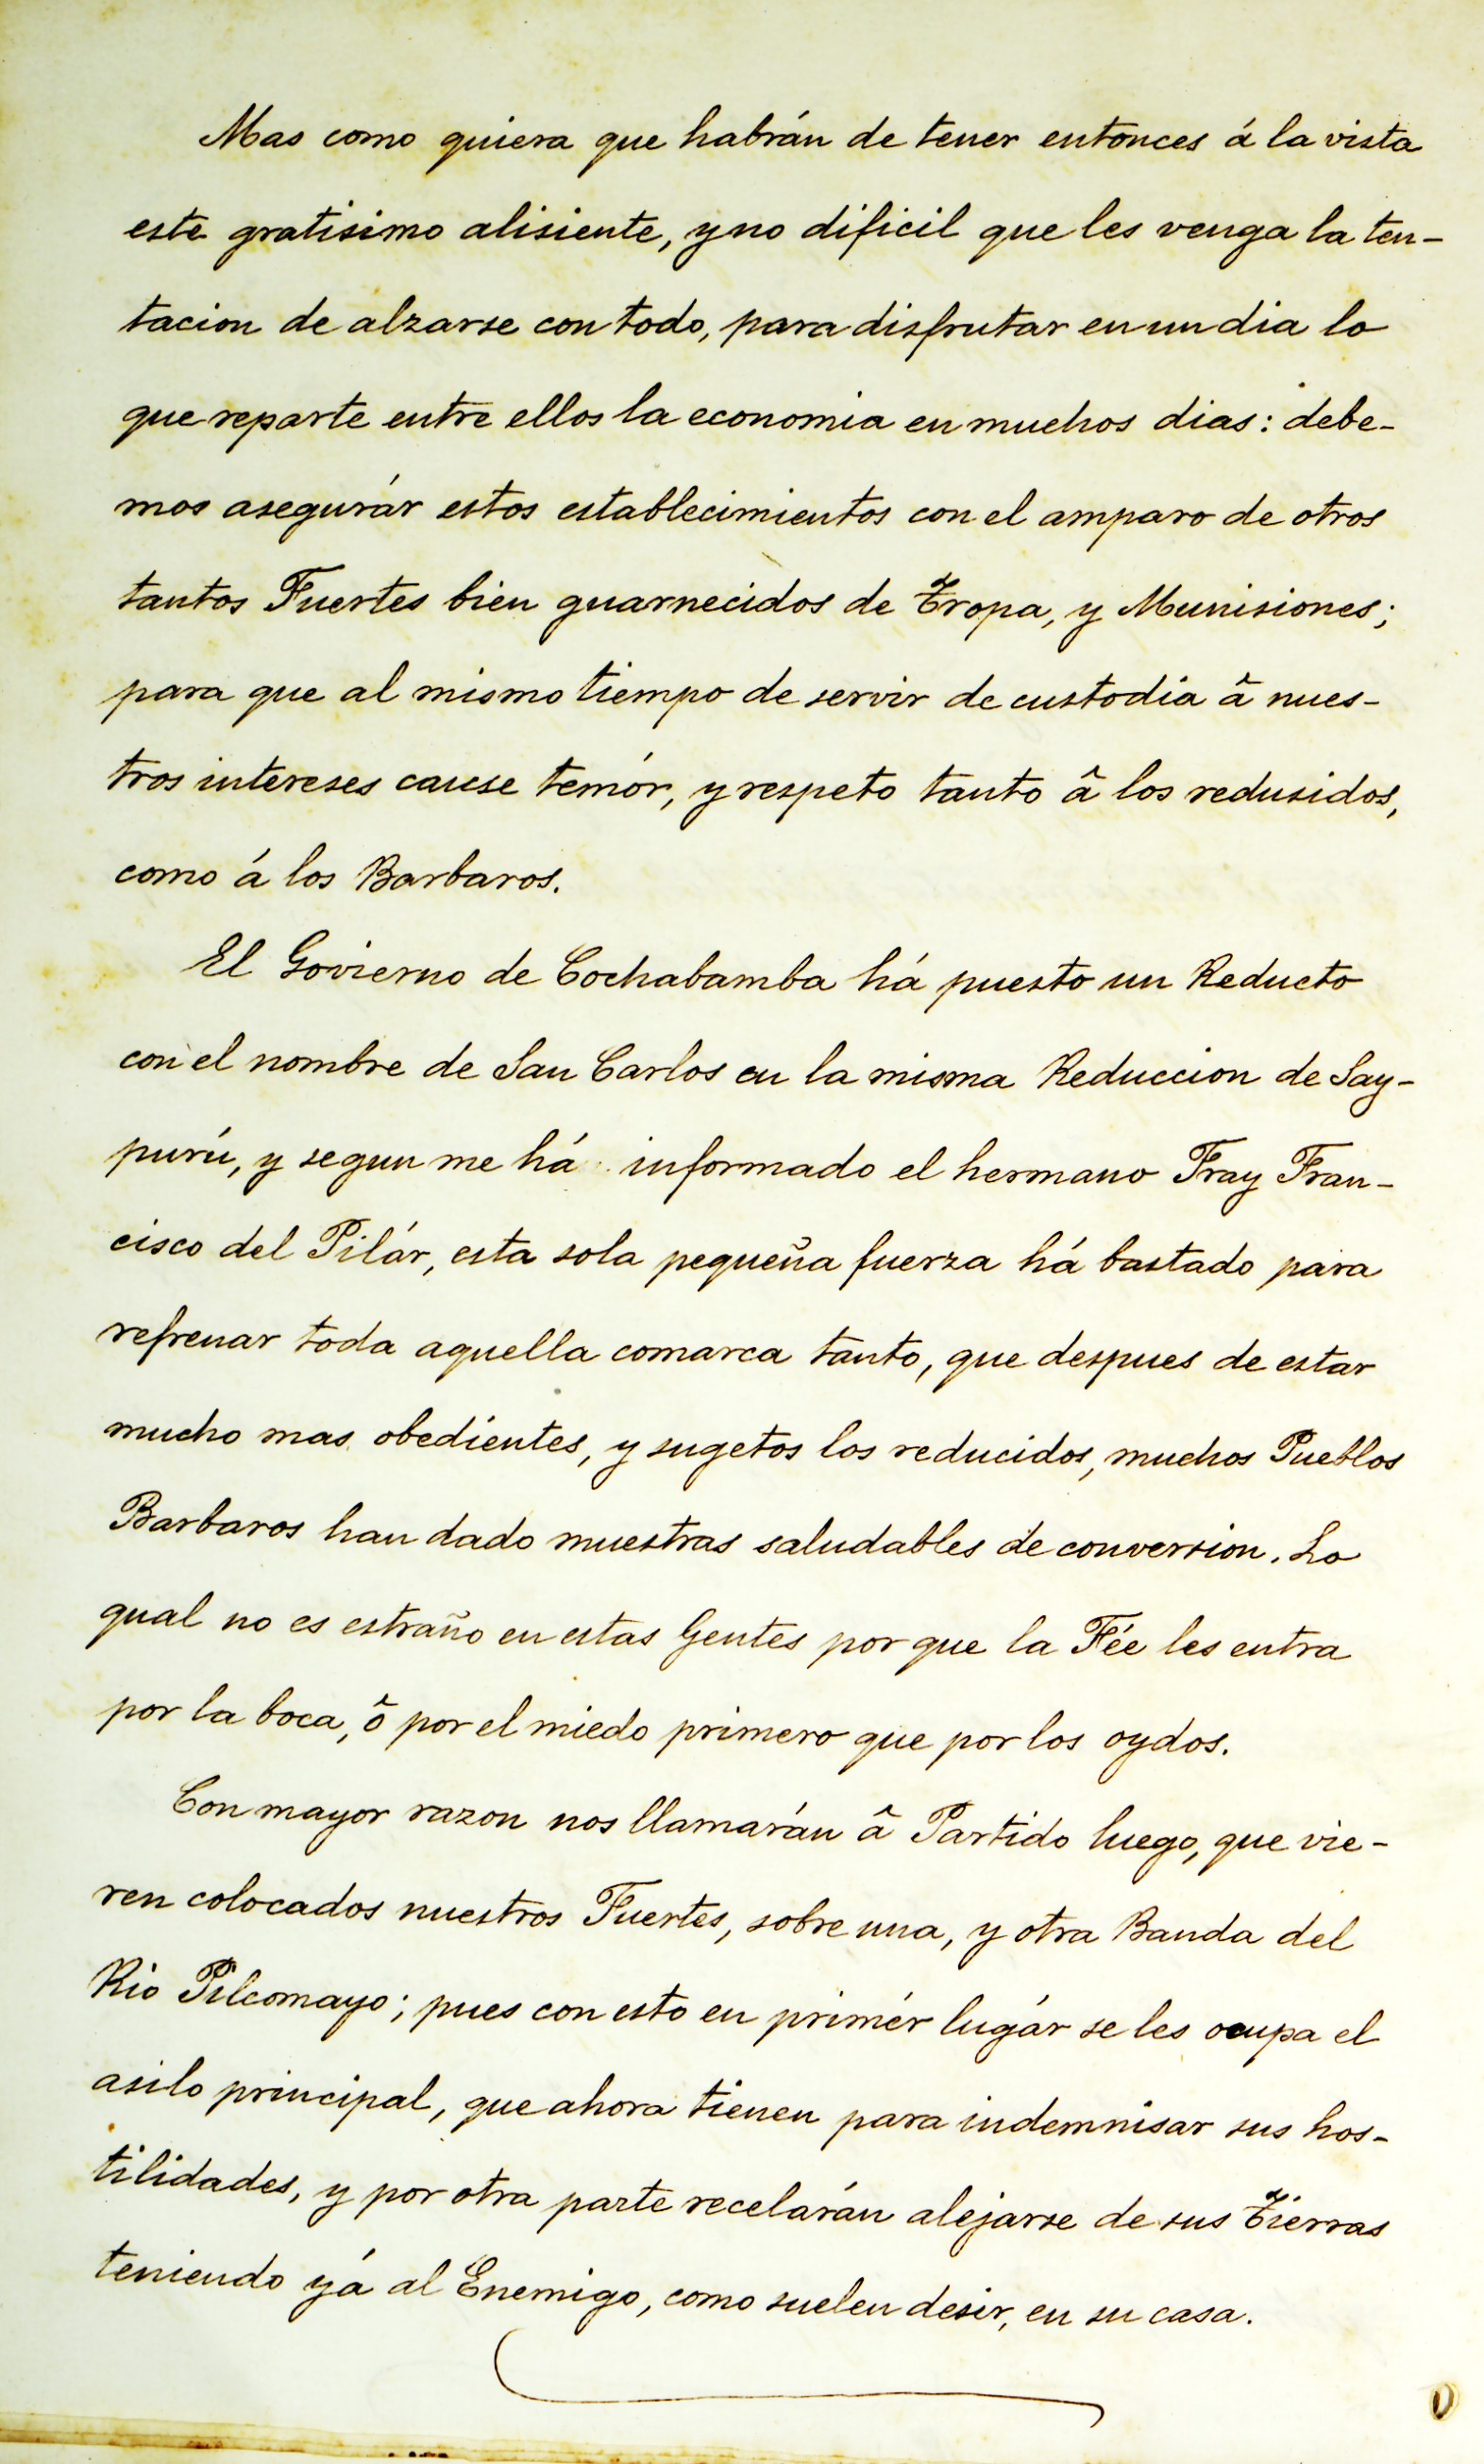 Mas como quiera que habrán de tener entonces á la vista
este gratisimo alisiente, y no dificil que les venga la ten-
tacion de alzarse con todo, para disfrutar en un dia lo
que reparte entre ellos la economia en muchos dias: debe-
mos asegurár estos establecimientos con el amparo de otros
tantos Fuertes bien guarnecidos de Tropa, y Munisiones;
para que al mismo tiempo de servir de custodia â nues-
tros intereses cause temór, y respeto tanto â los redusidos,
como á los Barbaros.
El Govierno de Cochabamba há puesto un Reducto
con el nombre de San Carlos en la misma Reduccion de Say-
purú, y segun me há informado el hermano Fray Fran-
cisco del Pilár, esta sola pequeña fuerza há bastado para
refrenar toda aquella comarca tanto, que despues de estar
mucho mas obedientes, y sugetos los reducidos, muchos Pueblos
Barbaros han dado muestras saludables de conversion. Lo
qual no es estraño en estas Gentes por que la Fée les entra
por la boca, ô por el miedo primero que por los oydos.
Con mayor razon nos llamarán â Partido luego, que vie-
ren colocados nuestros Fuertes, sobre una, y otra Banda del
Rio Pilcomayo; pues con esto en primér lugár se les ocupa el
asilo principal, que ahora tienen para indemnisar sus hos-
tilidades, y por otra parte recelarán alejarse de sus Tierras
teniendo yá al Enemigo, como suelen desir, en su casa.